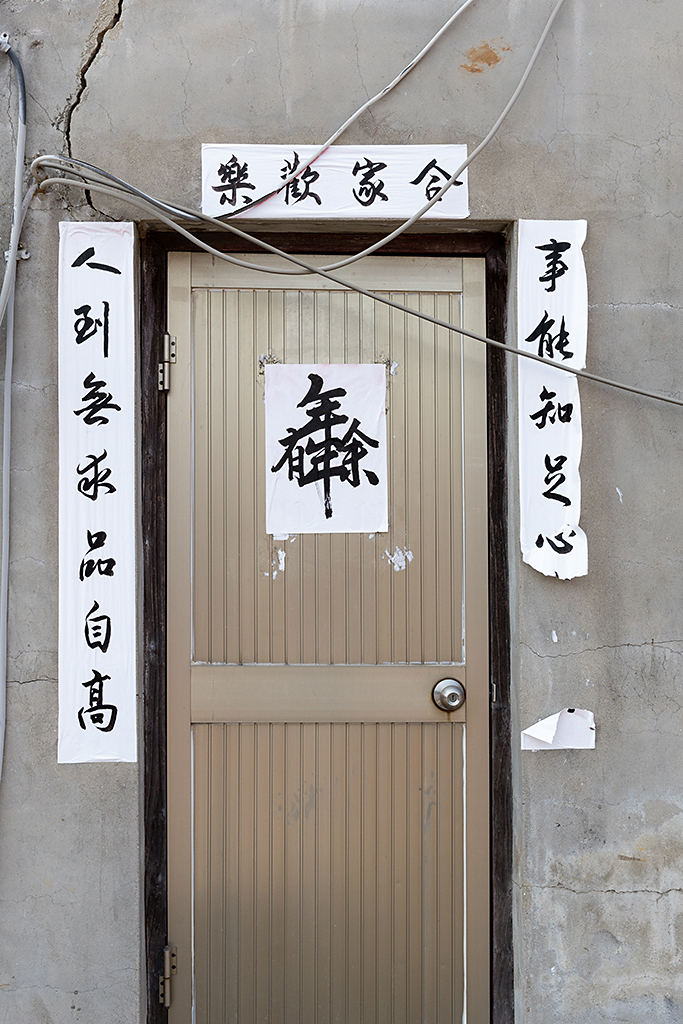 合家歡樂
事能知足心
人到無求品自高
年年有余